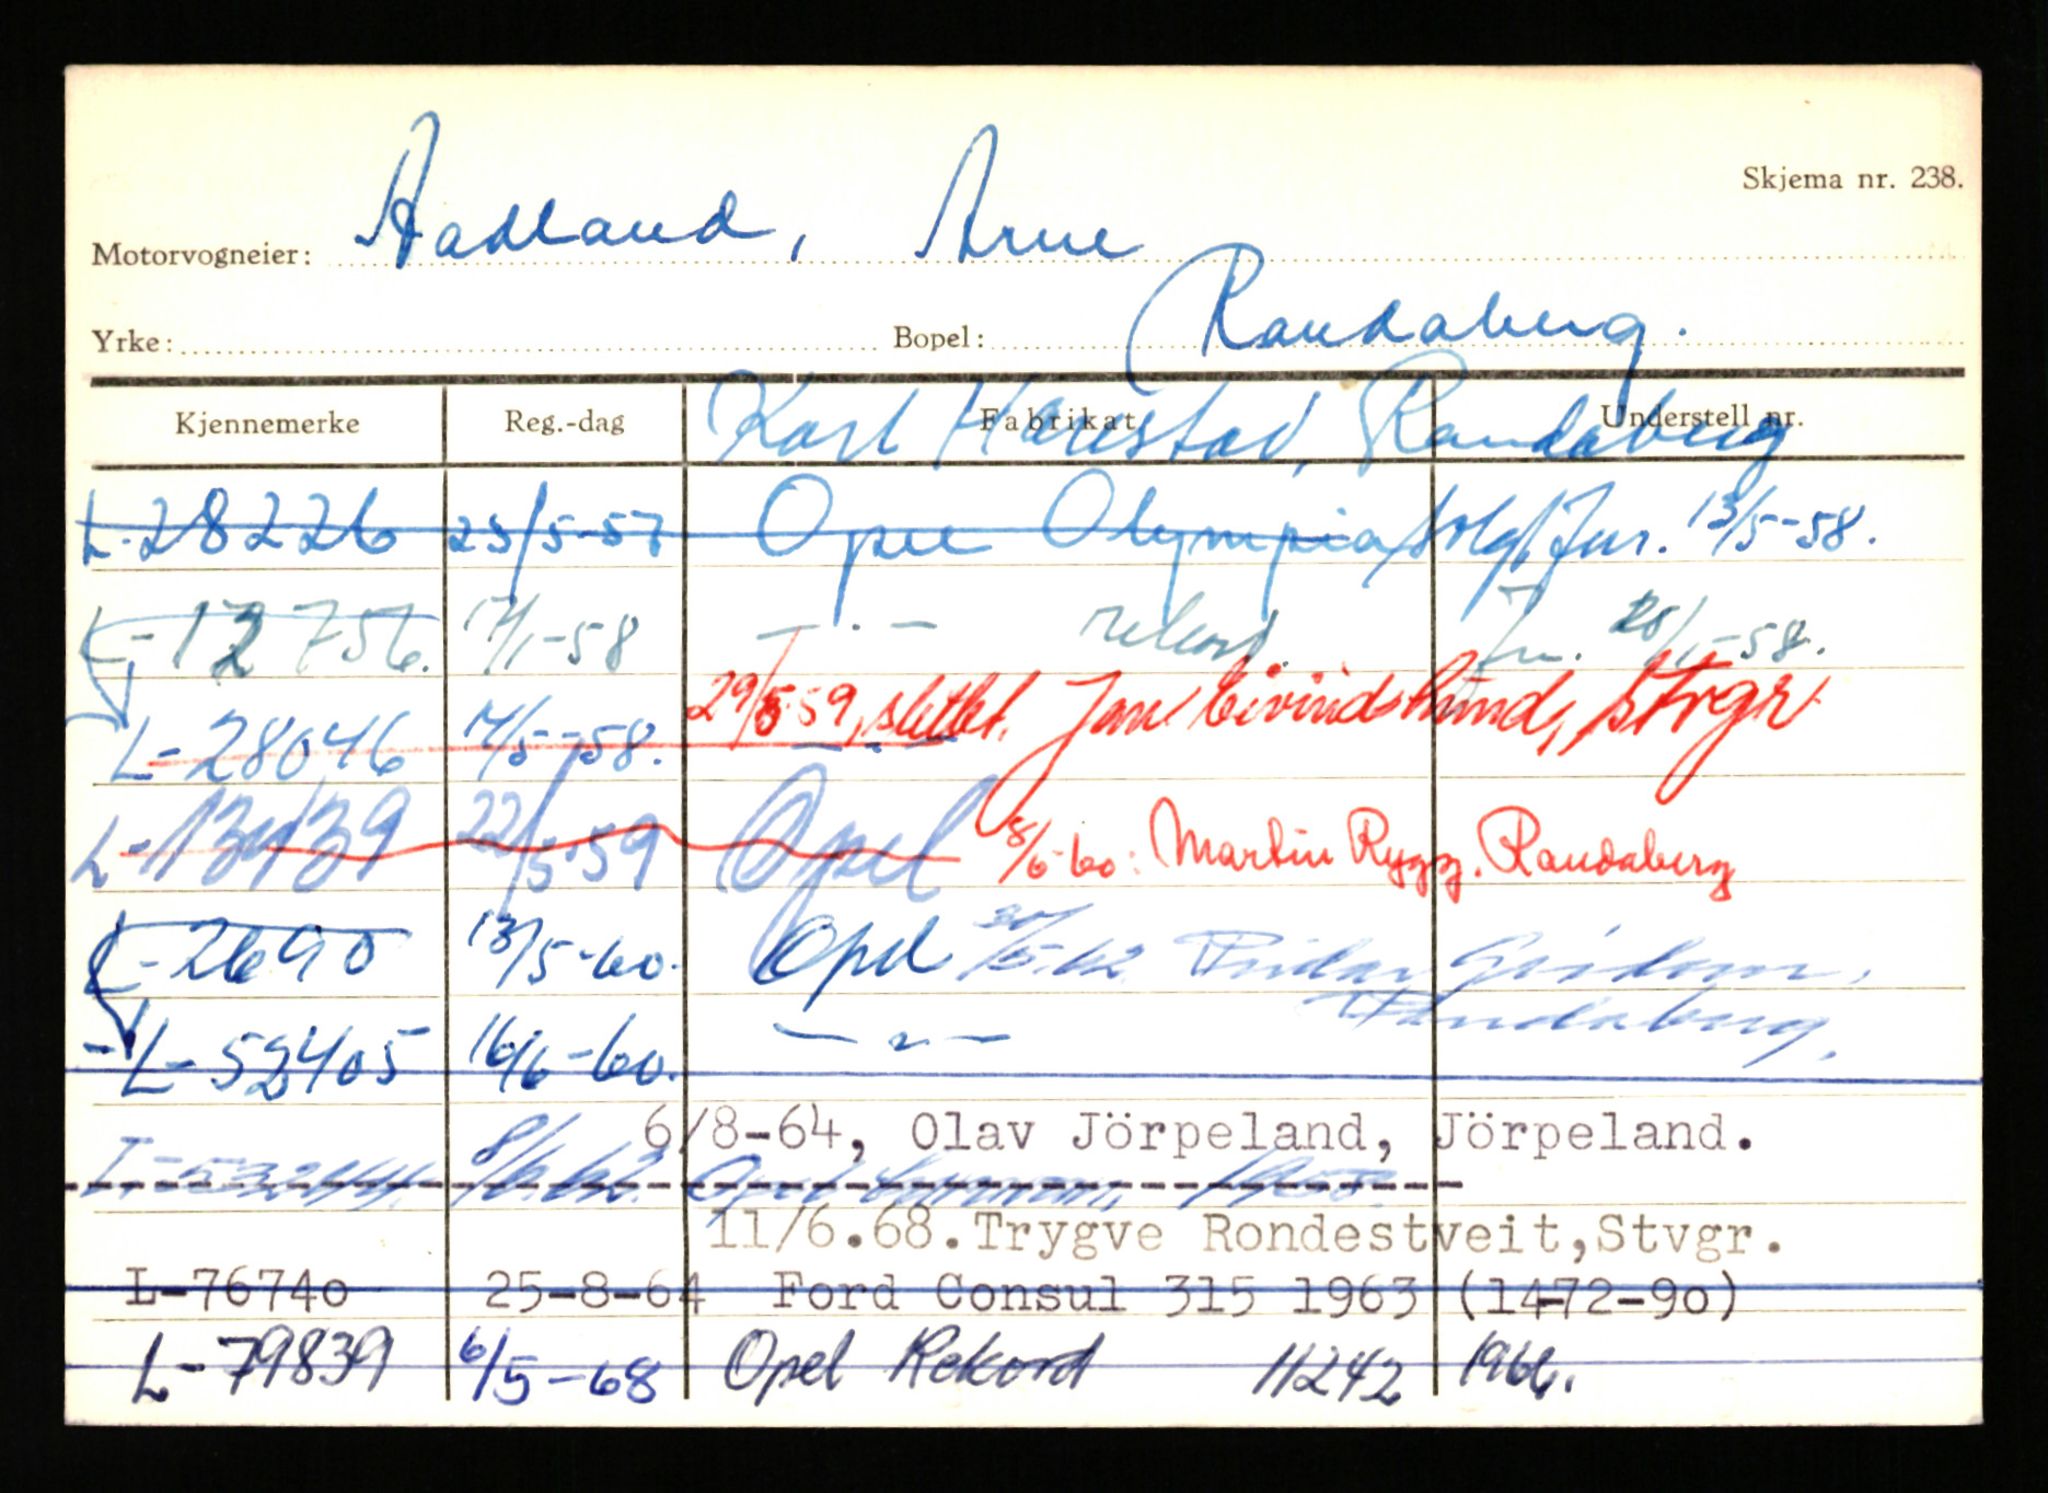 Skjema nr. 238.
Motorvogneier: Aadland, Arne
Yrke: Bopel: Randaberg.
Karl Harestad, Randaberg
Kjennemerke Reg.-dag Fabrikat Understell nr.
L-28226 23/5-57 Opel Olympia solgt Jur. 13/5-58.
L-12756. 17/1-58 — " — rekord. 20/1-58.
29/5-59, slettet. Jan Eivindshund, Stvgr
L-28046 14/5-58. — " —
L-13439 22/5-59 Opel 8/6-60: Martin Rygg. Randaberg
L-2690 13/5-60. Opel 30/5-62
Randaberg.
L-52405 16/6-60. — " —
6/8-64, Olav Jörpeland, Jörpeland.
L-53244. 8/6-62. Opel
11/6.68. Trygve Rondestveit, Stvgr.
L-76740 25-8-64 Ford Consul 315 1963 (1472-90)
L-79839 6/5-68 Opel Rekord 11242 1966.